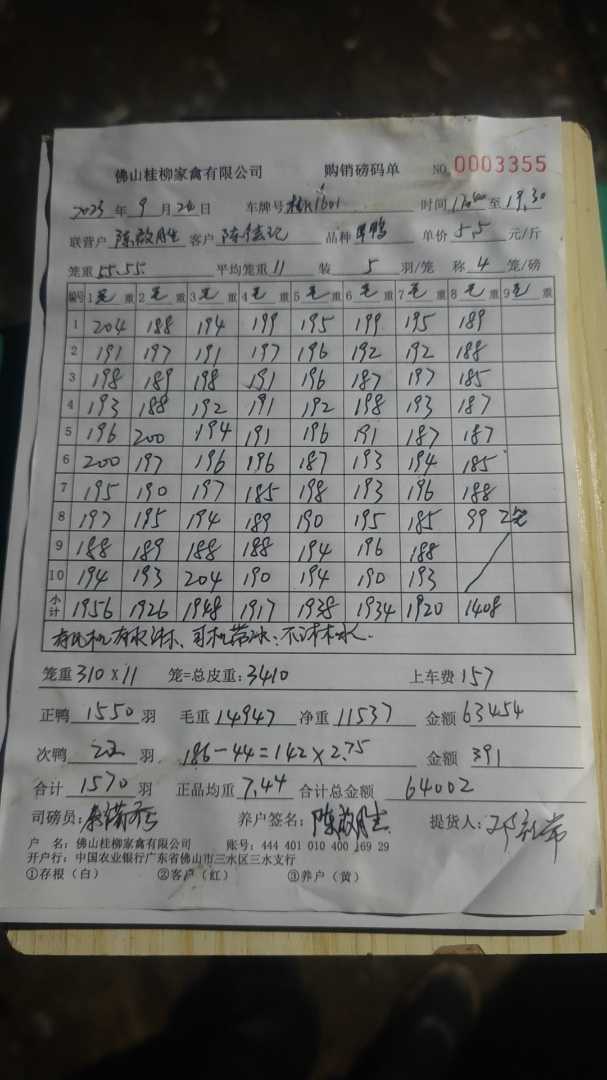 佛山桂柳家禽有限公司 购销磅码单 NO. 0003355
2023 年 9 月 24 日 车牌号 1601 时间 至 19.30
联营户 陈启胜 客户 品种 鸭 单价 5.5 元/斤
笼重 55.55 平均笼重 11 装 5 羽/笼 称 4 笼/磅
编号 1 毛 重 2 毛 重 3 毛 重 4 毛 重 5 毛 重 6 毛 重 7 毛 重 8 毛 重 9 毛 重
1 204 188 194 199 195 199 195 189
2 191 197 191 197 196 192 192 188
3 198 189 198 191 196 187 197 185
4 193 188 192 191 192 198 193 187
5 196 200 194 191 196 191 187 187
6 200 197 196 196 187 193 194 185
7 195 190 197 185 198 193 196 188
8 197 195 194 189 190 195 185 99 2笼
9 188 189 188 188 194 196 188
10 194 193 204 190 194 190 193
小计 1956 1926 1948 1917 1938 1934 1920 1408
笼重 310×11 笼=总皮重: 3410 上车费 157
正鸭 1550 羽 毛重 14947 净重 11537 金额 63454
次鸭 羽 186-44=142×2.75 金额 391
合计 1570 羽 正品均重 7.44 合计总金额 64002
司磅员: 养户签名: 陈启胜 提货人:
户 名: 佛山桂柳家禽有限公司 账号: 444 401 010 400 169 29
开户行: 中国农业银行广东省佛山市三水区三水支行
①存根（白） ②客户（红） ③养户（黄）